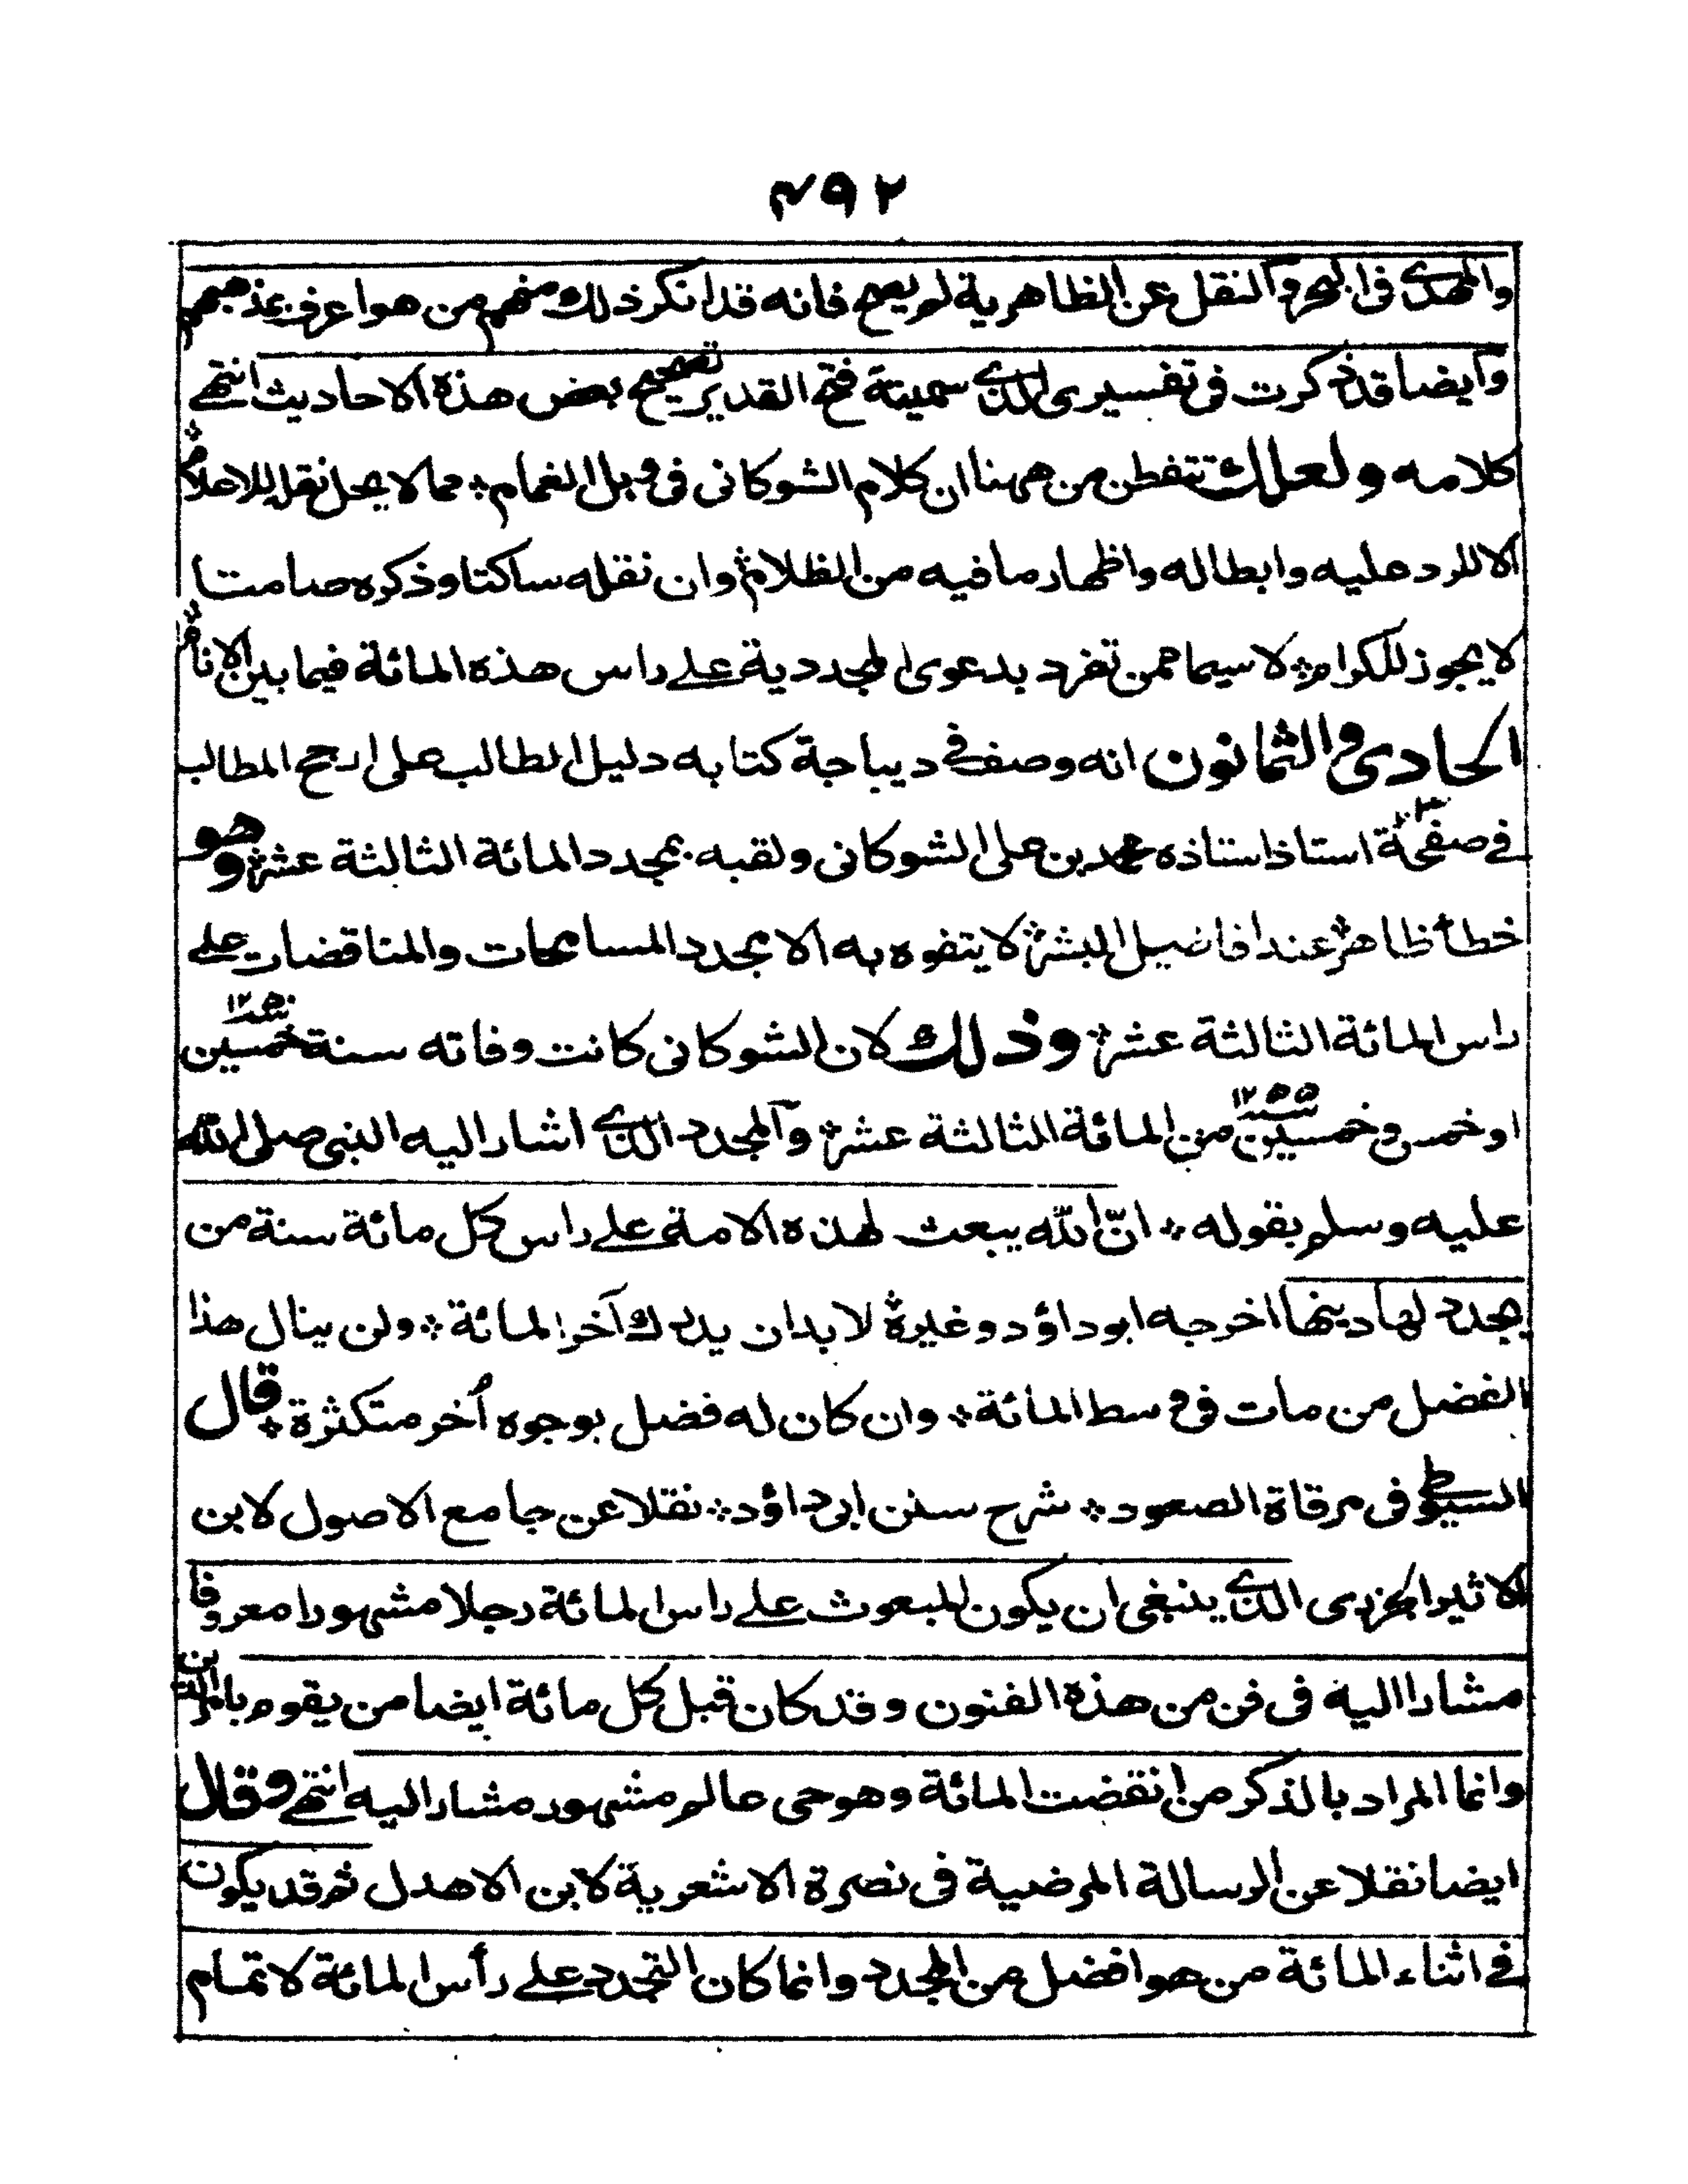 ۴۹۲
والمهدى فى البحر والنقل عن الظاهرية لم يصح فانه قد انكر ذلك منهم من هو اعرف بمذهبهم
وايضا قد ذكرت فى تفسيرى الذى سميته فتح القدير تصحيح بعض هذه الاحاديث انتهى
كلامه ولعلك تتفطن من ههنا ان كلام الشوكانى فى وبل الغمام ؞ مما لا يحل نقله للاعلام ؞
الا للرد عليه وابطاله واظهار ما فيه من الظلام ؞ وان نقله ساكتا وذكره صامتا
لا يجوز للكرام ؞ لا سيما ممن تفرد بدعوى المجددية على راس هذه المائة فيما بين الانام ؞
الحادى والثمانون انه وصف فى ديباجة كتابه دليل الطالب على ارجح المطالب
فى صفحة استاذ استاذه محمد بن على الشوكانى ولقبه بمجدد المائة الثالثة عشر ؞ وهو
خطأ ظاهر ؞ عند افاضل البشر ؞ لا يتفوه به الا مجدد المسامحات والمناقضات على
راس المائة الثالثة عشر ؞ وذلك لان الشوكانى كانت وفاته سنة خمسين ١٢٥٠
او خمس وخمسين ١٢٥٥ من المائة الثالثة عشر ؞ والمجدد الذى اشار اليه النبى صلى الله
عليه وسلم بقوله ؞ انّ الله يبعث لهذه الامة على راس كل مائة سنة من
يجدد لها دينها اخرجه ابو داؤد وغيره ؞ لا بد ان يدرك آخر المائة ؞ ولن ينال هذا
الفضل من مات فى وسط المائة ؞ وان كان له فضل بوجوه اُخر متكثرة ؞ قال
السيوطى فى مرقاة الصعود ؞ شرح سنن ابى داؤد ؞ نقلا عن جامع الاصول لابن
الاثير الجزرى الذى ينبغى ان يكون المبعوث على راس المائة رجلا مشهورا معروفا
مشارا اليه فى فن من هذه الفنون وقد كان قبل كل مائة ايضا من يقوم بامر الدين
وانما المراد بالذكر من انقضت المائة وهو حى عالم مشهور مشار اليه انتهى وقال
ايضا نقلا عن الرسالة المرضية فى نصرة الاشعرية لابن الاهدل ثم قد يكون
فى اثناء المائة من هو افضل من المجدد وانما كان التجدد على رأس المائة لا تمام